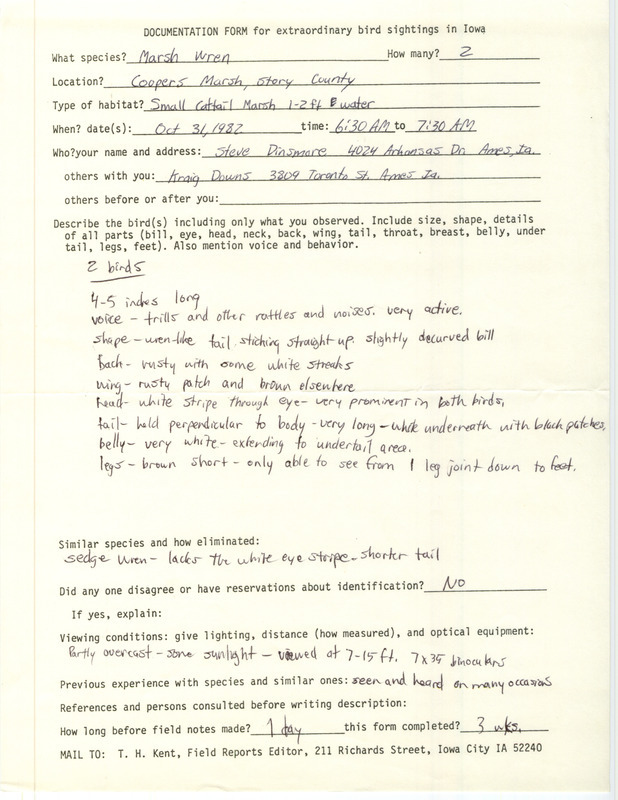 DOCUMENTATION FORM for extraordinary bird sightings in Iowa
What species? Marsh Wren How many? 2
Location? Coopers Marsh, Story County
Type of habitat? Small Cattail Marsh 1-2 ft water
When? date(s): Oct 31, 1982 time: 6:30 AM to 7:30 AM
Who?your name and address: Steve Dinsmore 4024 Arkansas Dr. Ames, Ia.
others with you: Kraig Downs 3809 Toronto St. Ames Ia.
others before or after you:
Describe the bird(s) including only what you observed. Include size, shape, details
of all parts (bill, eye, head, neck, back, wing, tail, throat, breast, belly, under
tail, legs, feet). Also mention voice and behavior.
2 birds
4-5 inches long
voice - trills and other rattles and noises. very active.
shape - wren-like tail sticking straight up. slightly decurved bill
back - rusty with some white streaks
wing - rusty patch and brown elsewhere
head - white stripe through eye - very prominent in both birds,
tail - held perpendicular to body - very long - white underneath with black patches,
belly - very white - extending to undertail area.
legs - brown short - only able to see from 1 leg joint down to feet.
Similar species and how eliminated:
sedge wren - lacks the white eye stripe - shorter tail
Did any one disagree or have reservations about identification? NO
If yes, explain:
Viewing conditions: give lighting, distance (how measured), and optical equipment:
Partly overcast - some sunlight - viewed at 7-15 ft. 7x35 binoculars
Previous experience with species and similar ones: seen and heard on many occasions
References and persons consulted before writing description:
How long before field notes made? 1 day this form completed? 3 wks.
MAIL TO: T. H. Kent, Field Reports Editor, 211 Richards Street, Iowa City IA 52240